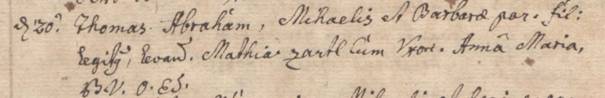 d 20. Thomas Abraham, Mihaelis et Barbaræ par. fil:
legitỹ, levan. Mathias zartl cum Vxore. Anna Maria,